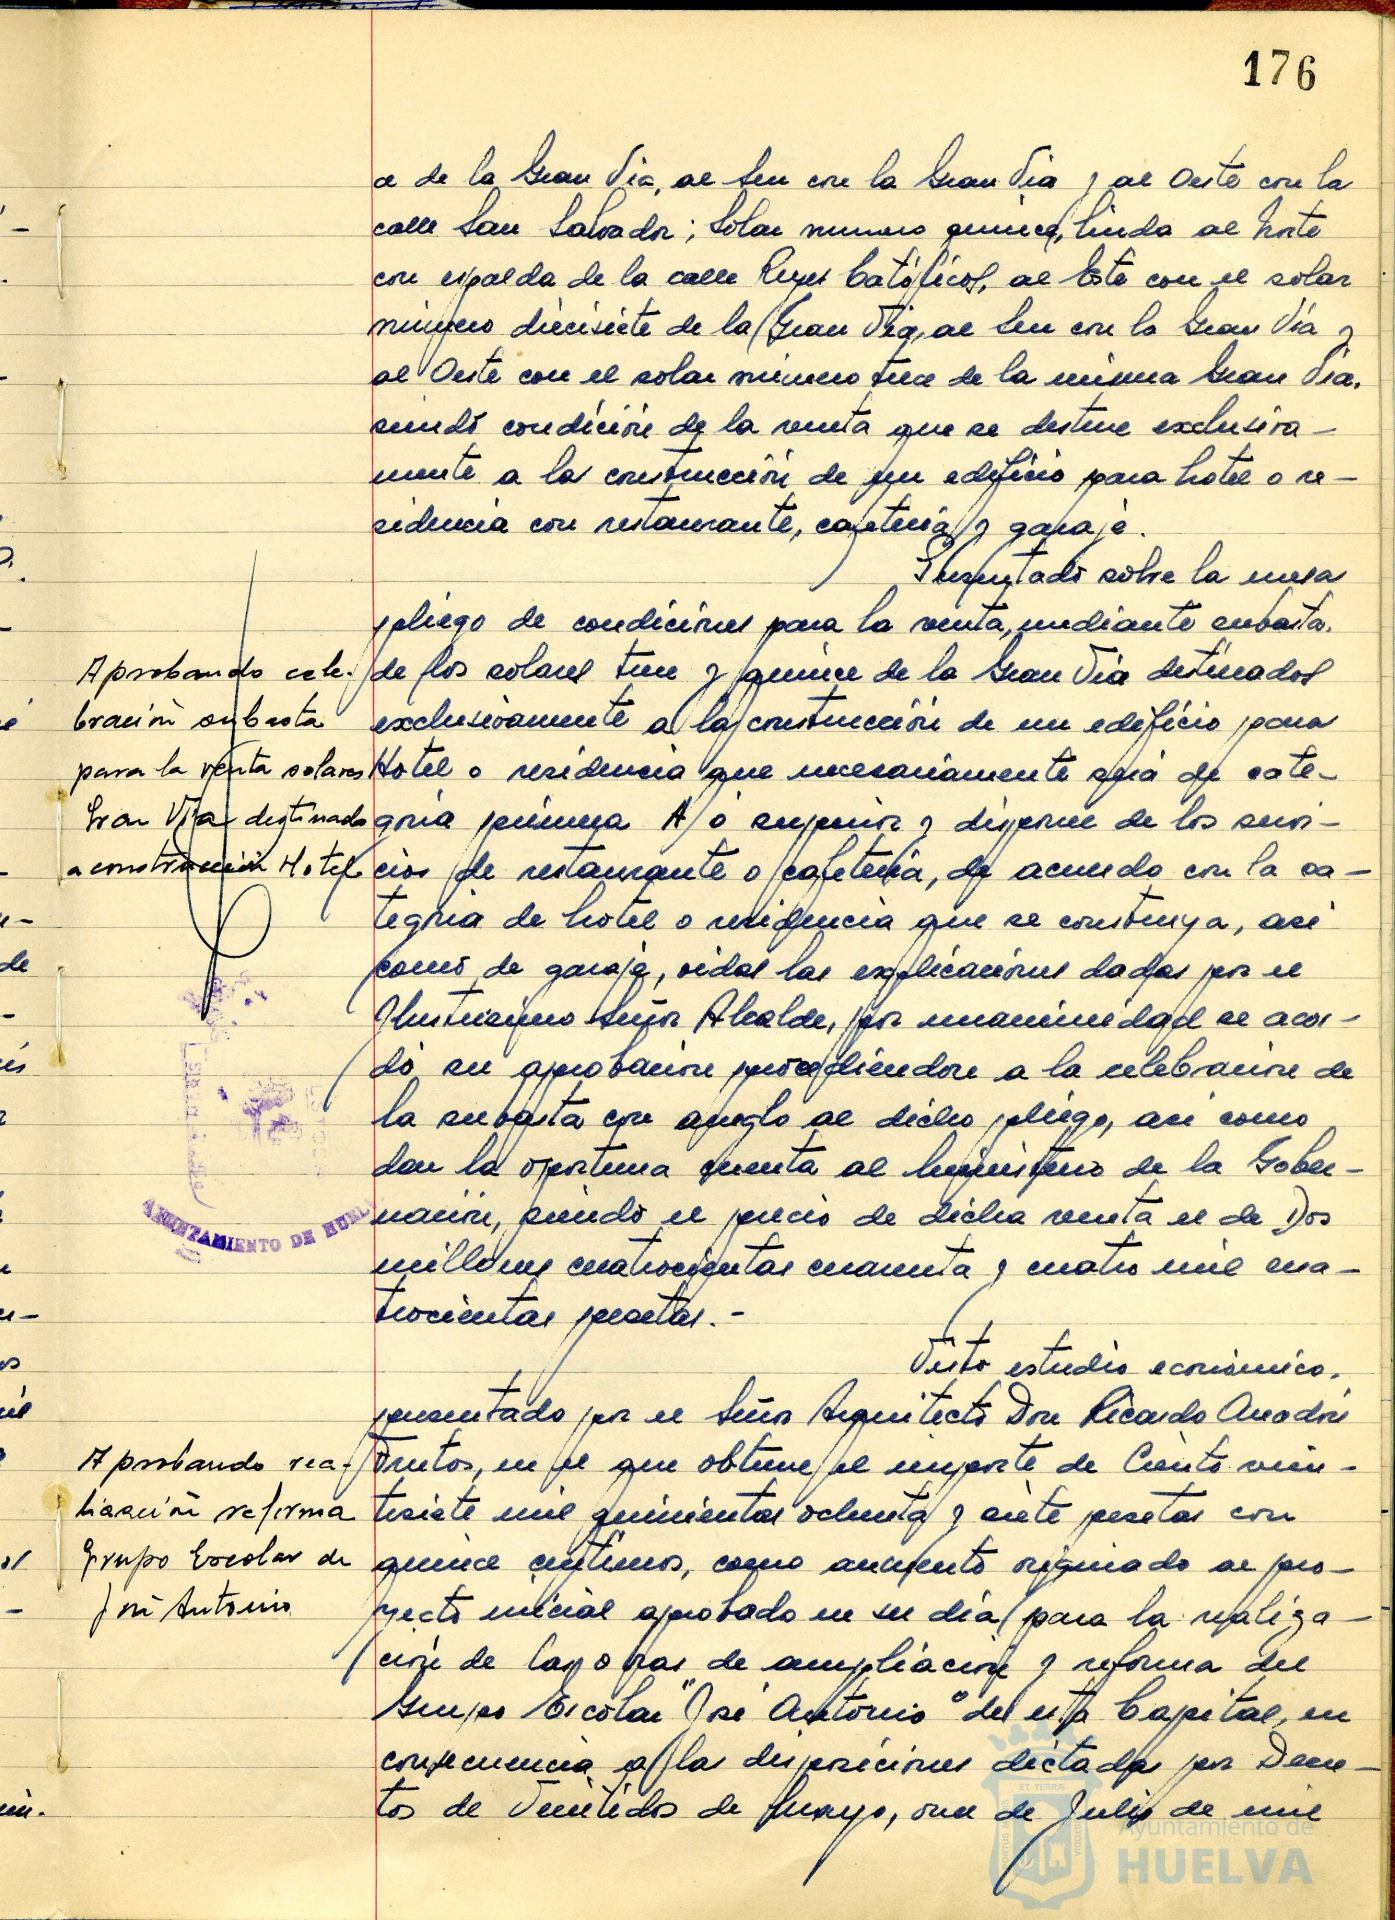 176
ce de la Gran Vía, al Sur con la Gran Vía y al Oeste con la
calle San Salvador; Solar numero quince, linda al Norte
con espalda de la calle Reyes Católicos, al Este con el solar
número diecisiete de la Gran Vía, al Sur con la Gran Vía y
al Oeste con el solar número trece de la misma Gran Vía,
siendo condición de la venta que se destine exclusiva-
mente a la construcción de un edificio para hotel o re-
sidencia con restaurante, cafetería y garaje.
Presentado sobre la mesa
pliego de condiciones para la venta, mediante subasta,
Aprobando cele-
bración subasta
para la venta solares
Gran Vía destinado
a construcción Hotel
de los solares trece y quince de la Gran Vía destinados
exclusivamente a la construcción de un edificio para
Hotel o residencia que necesariamente será de cate-
goría primera A ó superior y dispone de los servi-
cios de restaurante o cafetería, de acuerdo con la ca-
tegoria de hotel o residencia que se construya, asi
como de garaje, oidas las explicaciones dadas por el
Ilustrisimo Señor Alcalde, por unanimidad se acor-
dó su aprobacion procediendose a la celebracion de
la subasta con arreglo al dicho pliego, asi como
dar la oportuna cuenta al Ministerio de la Gober-
AYUNTAMIENTO DE HUEL
nación, siendo el precio de dicha venta el de Dos
millones cuatrocientas cuarenta y cuatro mil cua-
trocientas pesetas.-
Visto estudio económico,
presentado por el Señor Arquitecto Don Ricardo Anadón
Aprobando rea-
lización reforma
Grupo Escolar de
José Antonio
Frutos, en el que obtiene el importe de Ciento vein-
tisiete mil quinientas ochenta y siete pesetas con
quince centimos, como aumento originado al pro-
yecto inicial aprobado en su día para la realiza-
ción de las obras de ampliación y reforma del
Grupo Escolar "José Antonio" de esta Capital, en
consecuencia a las disposiciones dictadas por Decre-
tos de Veintidos de Mayo, once de Julio de mil
Ayuntamiento de
HUELVA